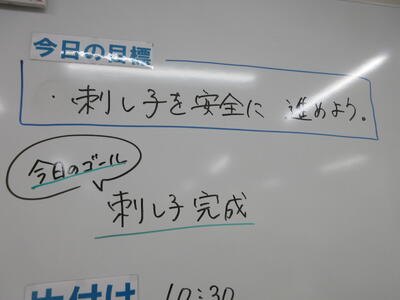 今日の目標
・刺し子を安全に 進めよう。
今日のゴール
刺し子完成
片付け 10:30